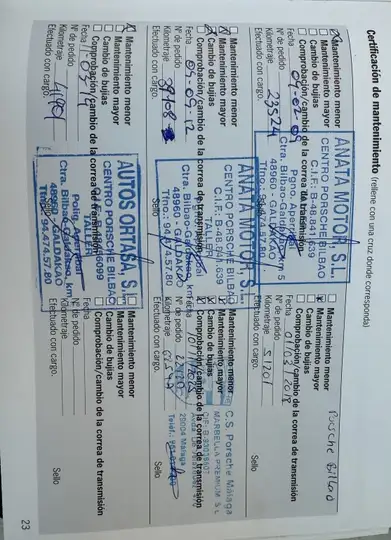 Certificación de mantenimiento (rellene con una cruz donde corresponda)
Mantenimiento menor
Mantenimiento mayor
Cambio de bujías
Comprobación/cambio de la correa de transmisión
Fecha 04-02-09
Nº de pedido
Kilometraje 23524
Efectuado con cargo.
ANATA MOTOR, S.L.
CENTRO PORSCHE BILBAO
C.I.F.: B-48.941.639
TALLER
Pgno. Aperribai
Ctra. Bilbao-Galdakao, km 5
48960 - GALDAKAO
Tfno.: 94.474.57.80
Mantenimiento menor
Mantenimiento mayor
Cambio de bujías
Comprobación/cambio de la correa de transmisión
Fecha
Nº de pedido
Kilometraje 51201
Efectuado con cargo.
Sello
Porsche Bilbao
Mantenimiento menor
Mantenimiento mayor
Cambio de bujías
Comprobación/cambio de la correa de transmisión
Fecha 04-09-12
Nº de pedido
Kilometraje
Efectuado con cargo.
Sello
ANATA MOTOR, S.L.
CENTRO PORSCHE BILBAO
C.I.F.: B-48.941.639
TALLER
Ctra. Bilbao-Galdakao, km
48960 - GALDAKAO
Tfno.: 94.474.57.80
Mantenimiento menor
Mantenimiento mayor
Cambio de bujías
Comprobación/cambio de la correa de transmisión
Fecha
Nº de pedido
Kilometraje
Efectuado con cargo.
Sello
C.S. Porsche Málaga
MARBELLA PREMIUM S.L
29004 Málaga
Mantenimiento menor
Mantenimiento mayor
Cambio de bujías
Comprobación/cambio de la correa de transmisión
Fecha
Nº de pedido
Kilometraje
Efectuado con cargo.
AUTOS ORTASA, S.L.
CENTRO PORSCHE BILBAO
TALLER
Polig. Aperribai
Ctra. Bilbao-Galdakao, km
48960 - GALDAKAO
Tfno.: 94.474.57.80
Mantenimiento menor
Mantenimiento mayor
Cambio de bujías
Comprobación/cambio de la correa de transmisión
Fecha
Nº de pedido
Kilometraje
Efectuado con cargo.
Sello
23